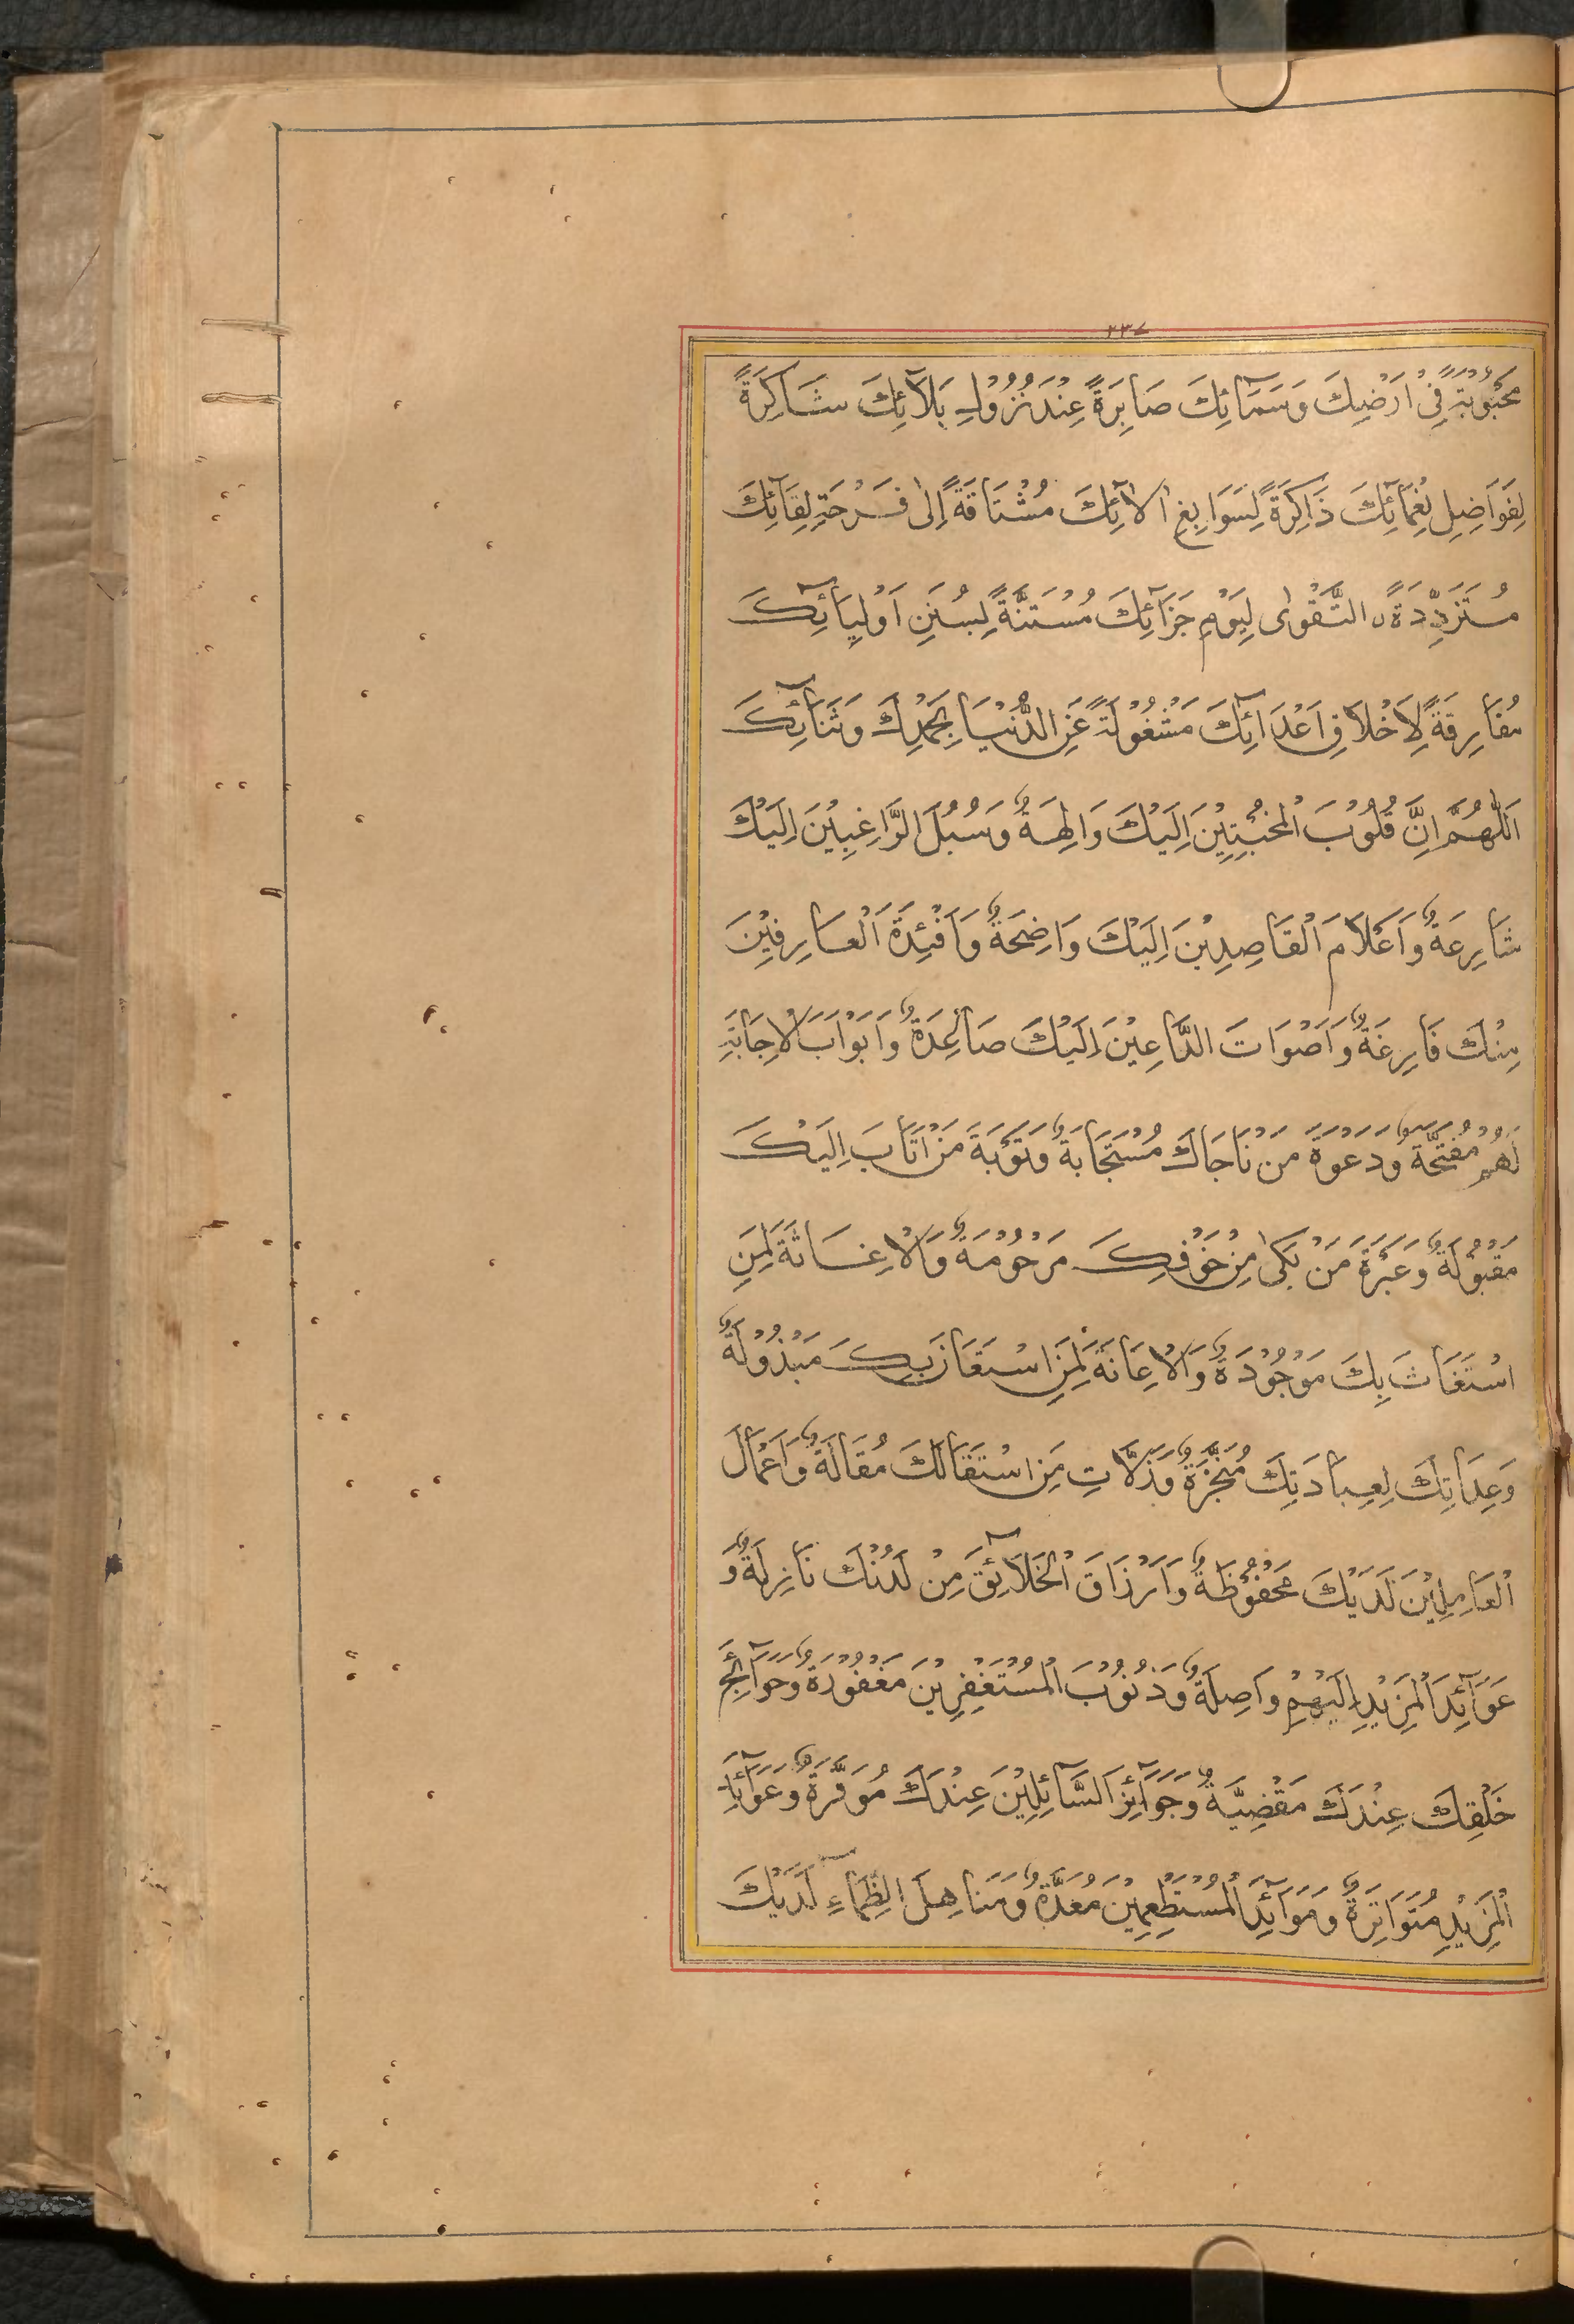 ٢٣٧
مَحْبُوْبَةً فِیْ اَرْضِكَ وَسَمَآئِكَ صَابِرَةً عِنْدَ نُزُوْلِ بَلَآئِكَ شَاكِرَةً
لِفَوَاضِلِ نِعْمَآئِكَ ذَاكِرَةً لِسَوَابِغِ اٰلَآئِكَ مُشْتَاقَةً اِلٰی فَرْحَةِ لِقَآئِكَ
مُتَزَوِّدَةً نِ التَّقْوٰی لِیَوْمِ جَزَآئِكَ مُسْتَنَّةً لِسُنَنِ اَوْلِیَآئِكَ
مُفَارِقَةً لِاَخْلَاقِ اَعْدَآئِكَ مَشْغُوْلَةً عَنِ الدُّنْیَا بِحَمْدِكَ وَثَنَآئِكَ
اَللّٰهُمَّ اِنَّ قُلُوْبَ الْمُخْبِتِیْنَ اِلَیْكَ وَالِهَةٌ وَسُبُلَ الرَّاغِبِیْنَ اِلَیْكَ
شَارِعَةٌ وَاَعْلَامَ الْقَاصِدِیْنَ اِلَیْكَ وَاضِحَةٌ وَاَفْئِدَةَ الْعَارِفِیْنَ
مِنْكَ فَارِغَةٌ وَاَصْوَاتَ الدَّاعِیْنَ اِلَیْكَ صَاعِدَةٌ وَاَبْوَابَ الْاِجَابَةِ
لَهُمْ مُفَتَّحَةٌ وَدَعْوَةَ مَنْ نَاجَاكَ مُسْتَجَابَةٌ وَتَوْبَةَ مَنْ اَنَابَ اِلَیْكَ
مَقْبُوْلَةٌ وَعَبْرَةَ مَنْ بَكٰی مِنْ خَوْفِكَ مَرْحُوْمَةٌ وَالْاِغَاثَةَ لِمَنِ
اسْتَغَاثَ بِكَ مَوْجُوْدَةٌ وَالْاِعَانَةَ لِمَنِ اسْتَعَانَ بِكَ مَبْذُوْلَةٌ
وَعِدَاتِكَ لِعِبَادَتِكَ مُنَجَّزَةٌ وَزَلَّاتِ مَنِ اسْتَقَالَكَ مُقَالَةٌ وَاَعْمَالَ
الْعَامِلِیْنَ لَدَیْكَ مَحْفُوْظَةٌ وَاَرْزَاقَ الْخَلَآئِقِ مِنْ لَدُنْكَ نَازِلَةٌ وَ
عَوَآئِدَ الْمَزِیْدِ اِلَیْهِمْ وَاصِلَةٌ وَذُنُوْبَ الْمُسْتَغْفِرِیْنَ مَغْفُوْرَةٌ وَحَوَآئِجَ
خَلْقِكَ عِنْدَكَ مَقْضِیَّةٌ وَجَوَآئِزَ السَّآئِلِیْنَ عِنْدَكَ مُوَفَّرَةٌ وَعَوَآئِدَ
الْمَزِیْدِ مُتَوَاتِرَةٌ وَمَوَآئِدَ الْمُسْتَطْعِمِیْنَ مُعَدَّةٌ وَمَنَاهِلَ الظِّمَآءِ لَدَیْكَ